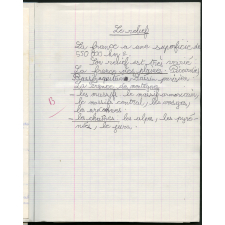 Le relief
La france a une superficie de
550 000 km²
Son relief est très varié
La france des plaines
La France de montagne
- les massifs le massif armoricain,
le massif central, les vosges,
les ardennes
- les chaînes les alpes, les pyré-
nées, le jura.
B